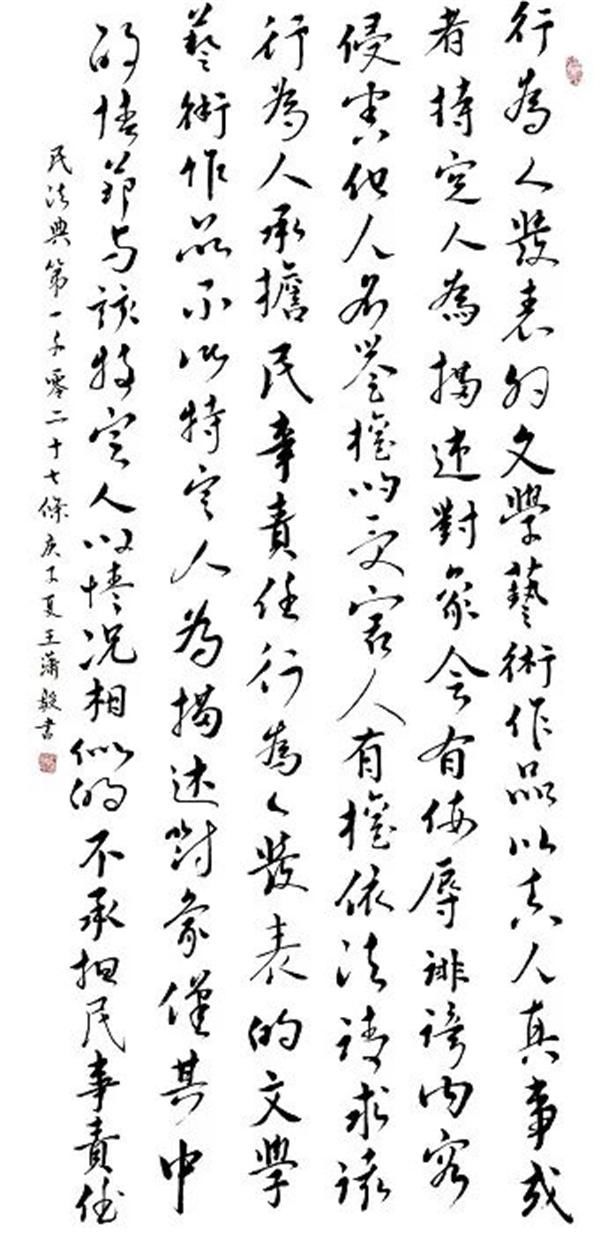 行為人發表的文學藝術作品以真人真事或
者特定人為描述對象含有侮辱誹謗內容
侵害他人名譽權的受害人有權依法請求該
行為人承擔民事責任行為人發表的文學
藝術作品不以特定人為描述對象僅其中
的情節与該特定人的情況相似的不承担民事責任
民法典第一千零二十七條庚子夏王瀟毅書